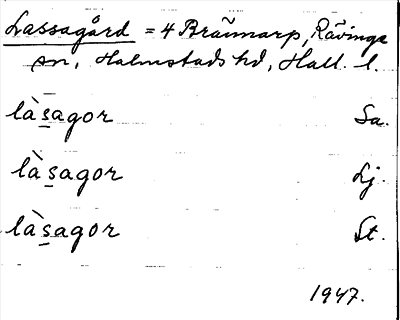 Lassagård = 4 Brännarp, Rävinge
sn, Halmstads hd, Hall. l.
là̀s̲agor Sa.
làs̲agor Lj.
làs̲agor St.
1947.